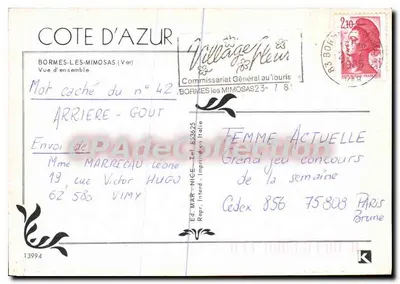 COTE D'AZUR
BORMES-LES-MIMOSAS (Var)
Vue d'ensemble
Mot caché du n° 42
ARRIERE-GOUT
Envoi de
Mme MARRECAU Leone
19, rue Victor HUGO
62 580 VIMY
13994
Ed. MAR - NICE - Tel. 8
Repr. Interd - Imprimé en Italie
Village fleuri
Commissariat Général au Touris
BORMES les MIMOSAS
2,10
83 BOR
FEMME ACTUELLE
Grand jeu concours
de la semaine
Cedex 856 75808 PARIS
Brune
K